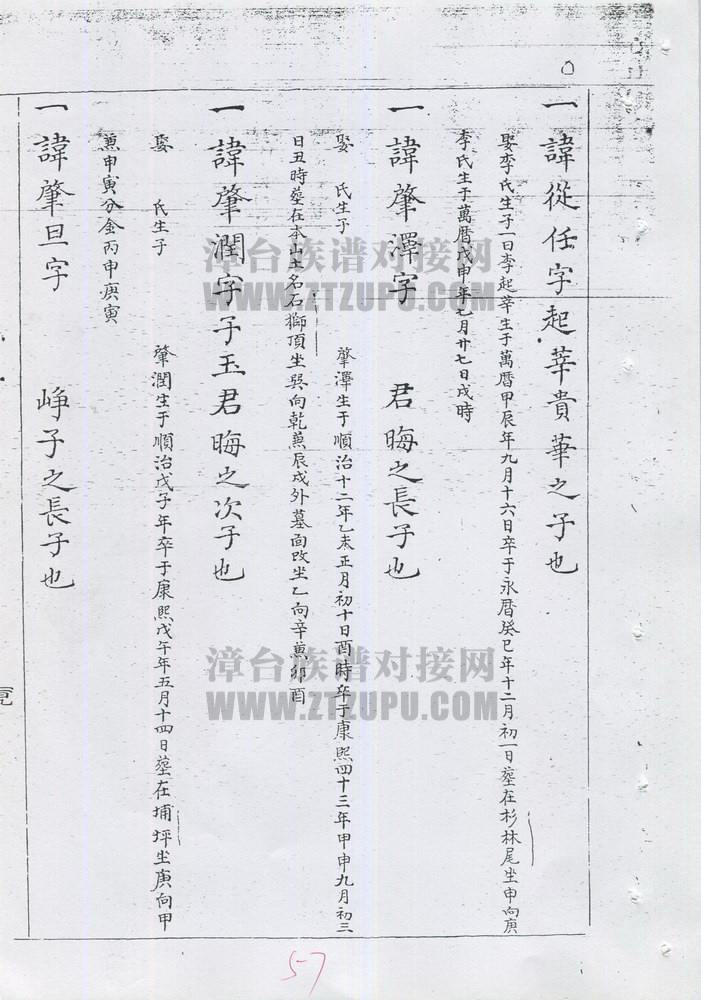 一諱從任字起莘貴華之子也
娶李氏生子一曰李起莘生于萬曆甲辰年九月十六日卒于永曆癸巳年十二月初一日塟在杉林尾坐申向庚
李氏生于萬曆戊申年七月廿七日戌時
一諱肇澤字 君晦之長子也
娶 氏生子 肇澤生于順治十二年乙未正月初十日酉時卒于康熙四十三年甲申九月初三
日丑時塟在本山土名石獅頂坐巽向乾兼辰戌外墓面改坐乙向辛兼卯酉
一諱肇潤字子玉君晦之次子也
娶 氏生子 肇潤生于順治戊子年卒于康熙戊午年五月十四日塟在埔坪坐庚向甲
兼申寅分金丙申庚寅
一諱肇旦字 崢子之長子也
漳台族谱对接网
WWW.ZTZUPU.COM
漳台族谱对接网
WWW.ZTZUPU.COM
57